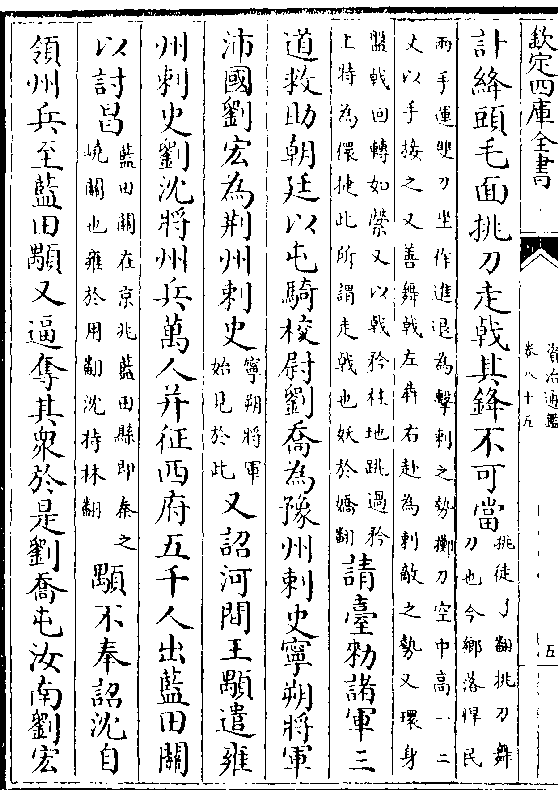 欽定四庫全書
資治通鑑
卷八十五
五
計絳頭毛面挑刀走㦸其鋒不可當挑徒了翻挑刀舞刀也今鄉落悍民
兩手運雙刀坐作進退為擊刺之勢擲刀空中高一二丈以手接之又善舞㦸左奔右赴為刺敵之勢又環身
盤㦸回轉如縈又以㦸矜柱地跳過矜上特為儇捷此所謂走㦸也妖於嬌翻請臺勑諸軍三
道救助朝廷以屯騎校尉劉喬為豫州刺史寧朔將軍
沛國劉宏為荆州刺史寧朔將軍始見於此又詔河間王顒遣雍
州刺史劉沈將州兵萬人并征西府五千人出藍田關
以討昌藍田關在京兆藍田縣即秦之嶢關也雍於用翻沈持林翻顒不奉詔沈自
領州兵至藍田顒又逼奪其衆於是劉喬屯汝南劉宏